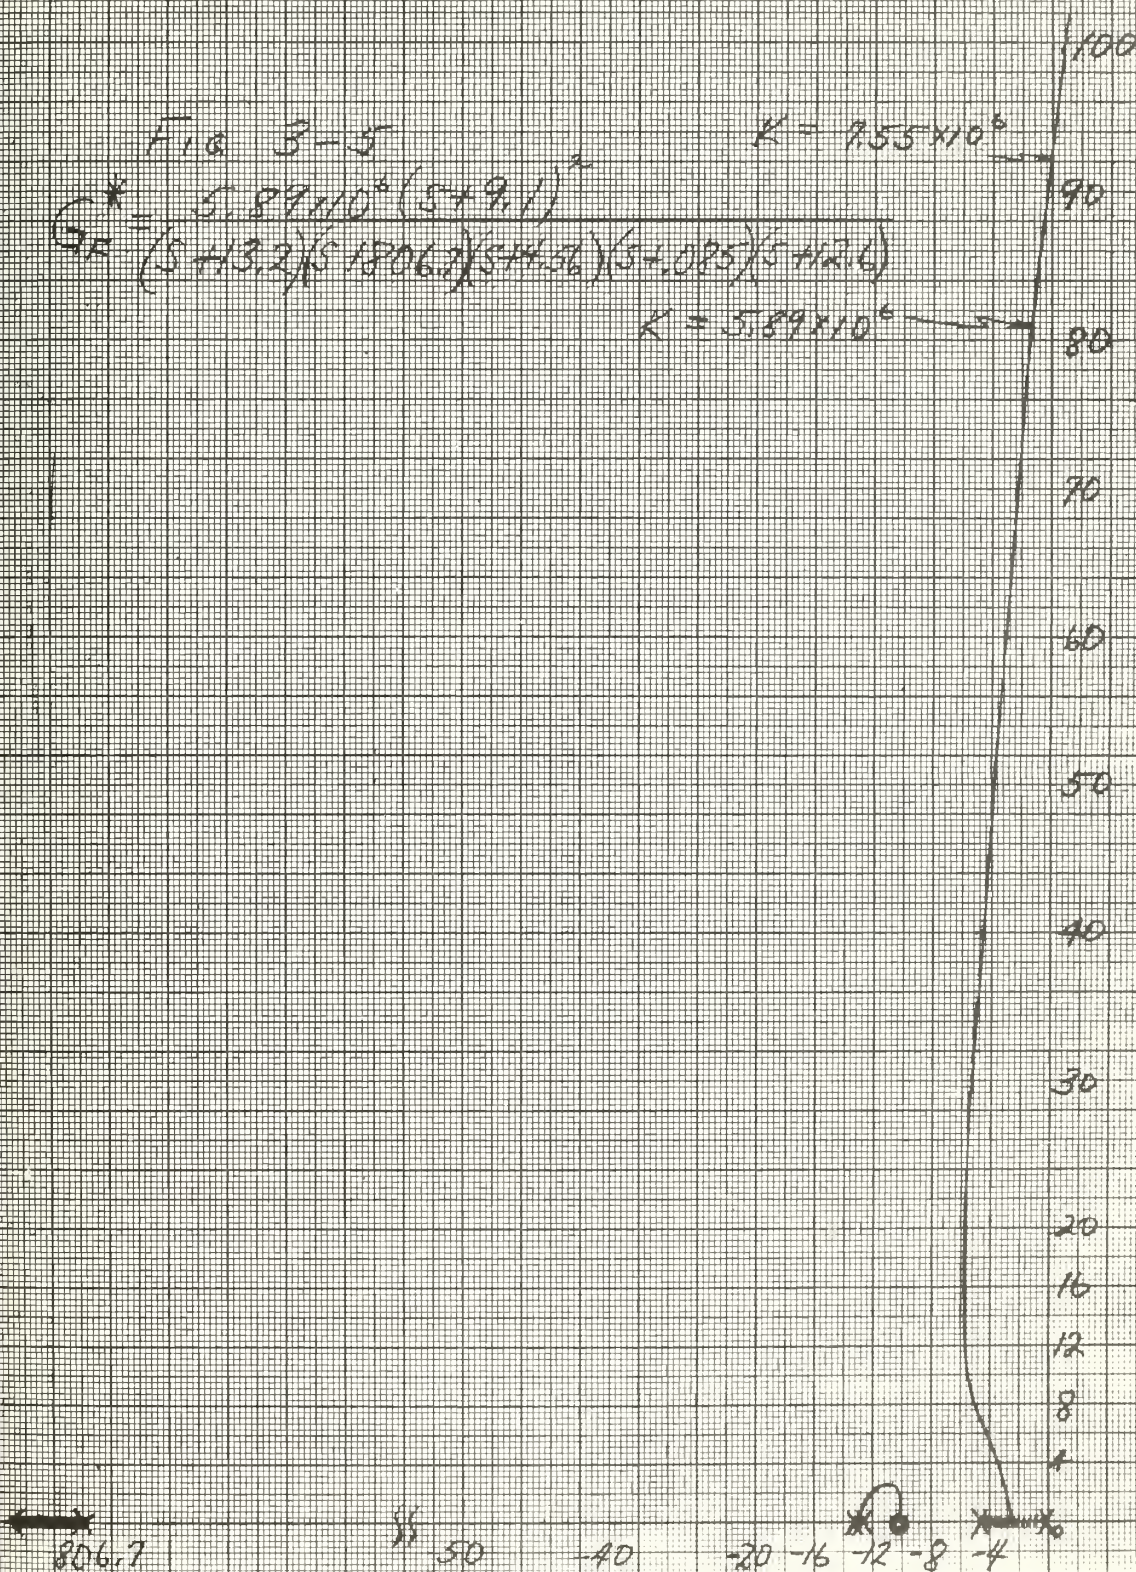 Fig 3-5
K = 7.55×10⁶
G_F* = 5.89×10⁶(S+9.1)²
(S+13.2)(S+806.7)(S+4.56)(S+.085)(S+12.6)
K = 5.89×10⁶
100
90
80
70
60
50
40
30
20
16
12
8
4
806.7 -50 -40 -20 -16 -12 -8 -4 0